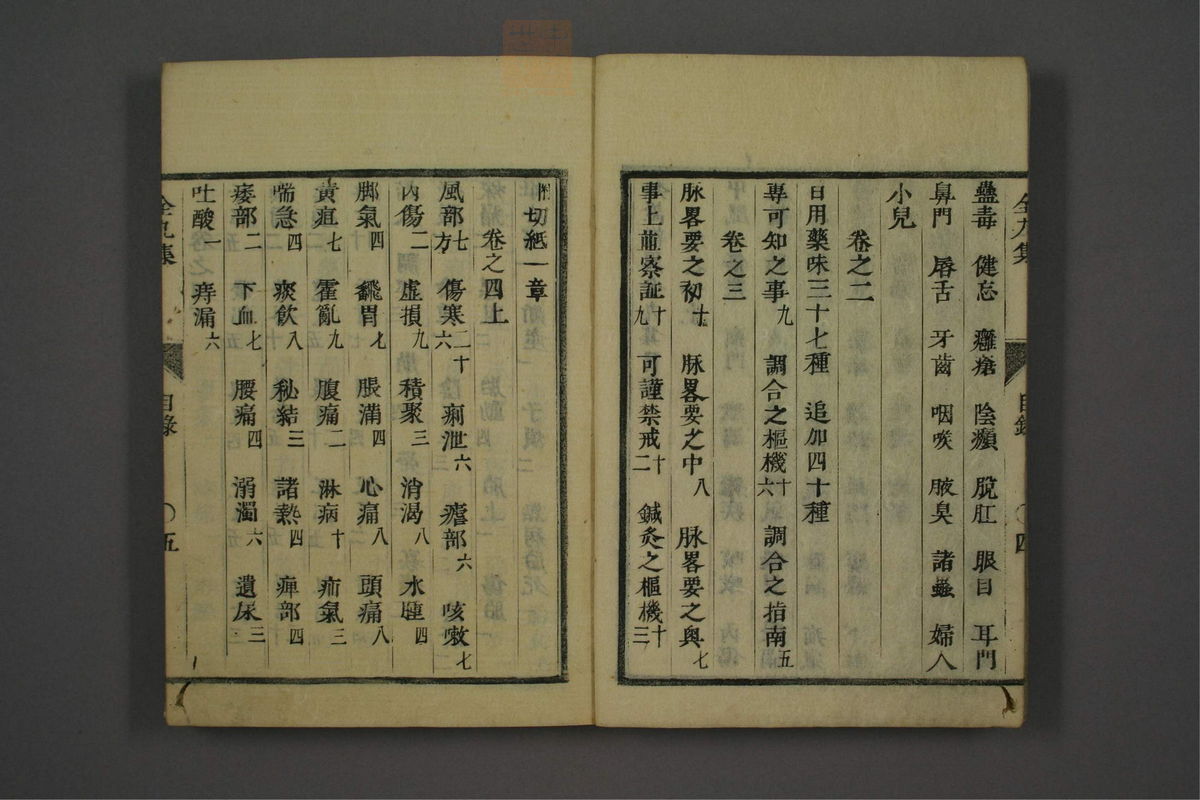 蠱毒 健忘 癰瘡 陰㿗 脫肛 眼目 耳門
鼻門 唇舌 牙齒 咽喉 腋臭 諸蟲 婦人
小兒
卷之二
日用藥味三十七種 追加四十種
專可知之事九 調合之樞機十六 調合之指南五
卷之三
脉畧要之初十 脉畧要之中八 脉畧要之奥七
事上前察証十九 可謹禁戒十二 鍼灸之樞機十三
全九集 目錄 〇四
附切紙一章
卷之四上
風部七方 傷寒二十六 痢泄六 瘧部六 咳嗽七
內傷二 虛損九 積聚三 消渴八 水腫四
脚氣四 翻胃七 脹滿四 心痛八 頭痛八
黃疸七 霍亂九 腹痛二 淋病十 疝氣三
喘急四 痰飲八 秘結三 諸熱四 痺部四
痿部二 下血七 腰痛四 溺濁六 遺尿三
吐酸一 痔漏六
全九集 目錄 〇五